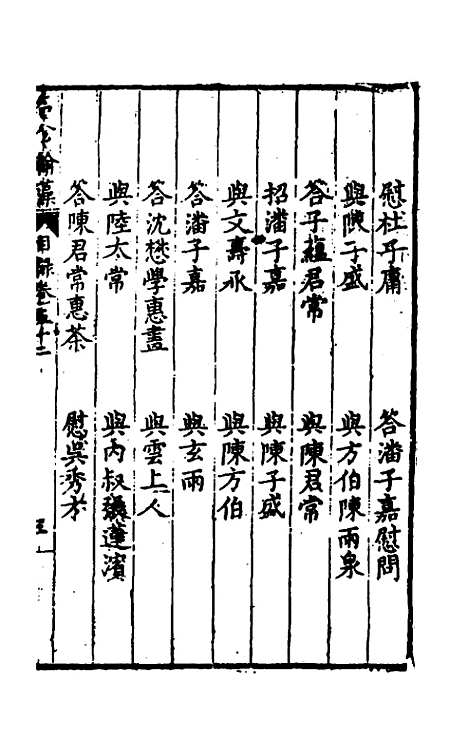 慰杜子庸　答潘子嘉慰問
與陳子盛　與方伯陳兩泉
答子蘊君常　與陳君常
招潘子嘉　與陳子盛
與文壽承　與陳方伯
答潘子嘉　與玄雨
答沈懋學惠畫　與雲上人
與陸太常　與內叔張蓮濱
答陳君常惠茶　慰吳秀才
翰藻　目錄卷五十二